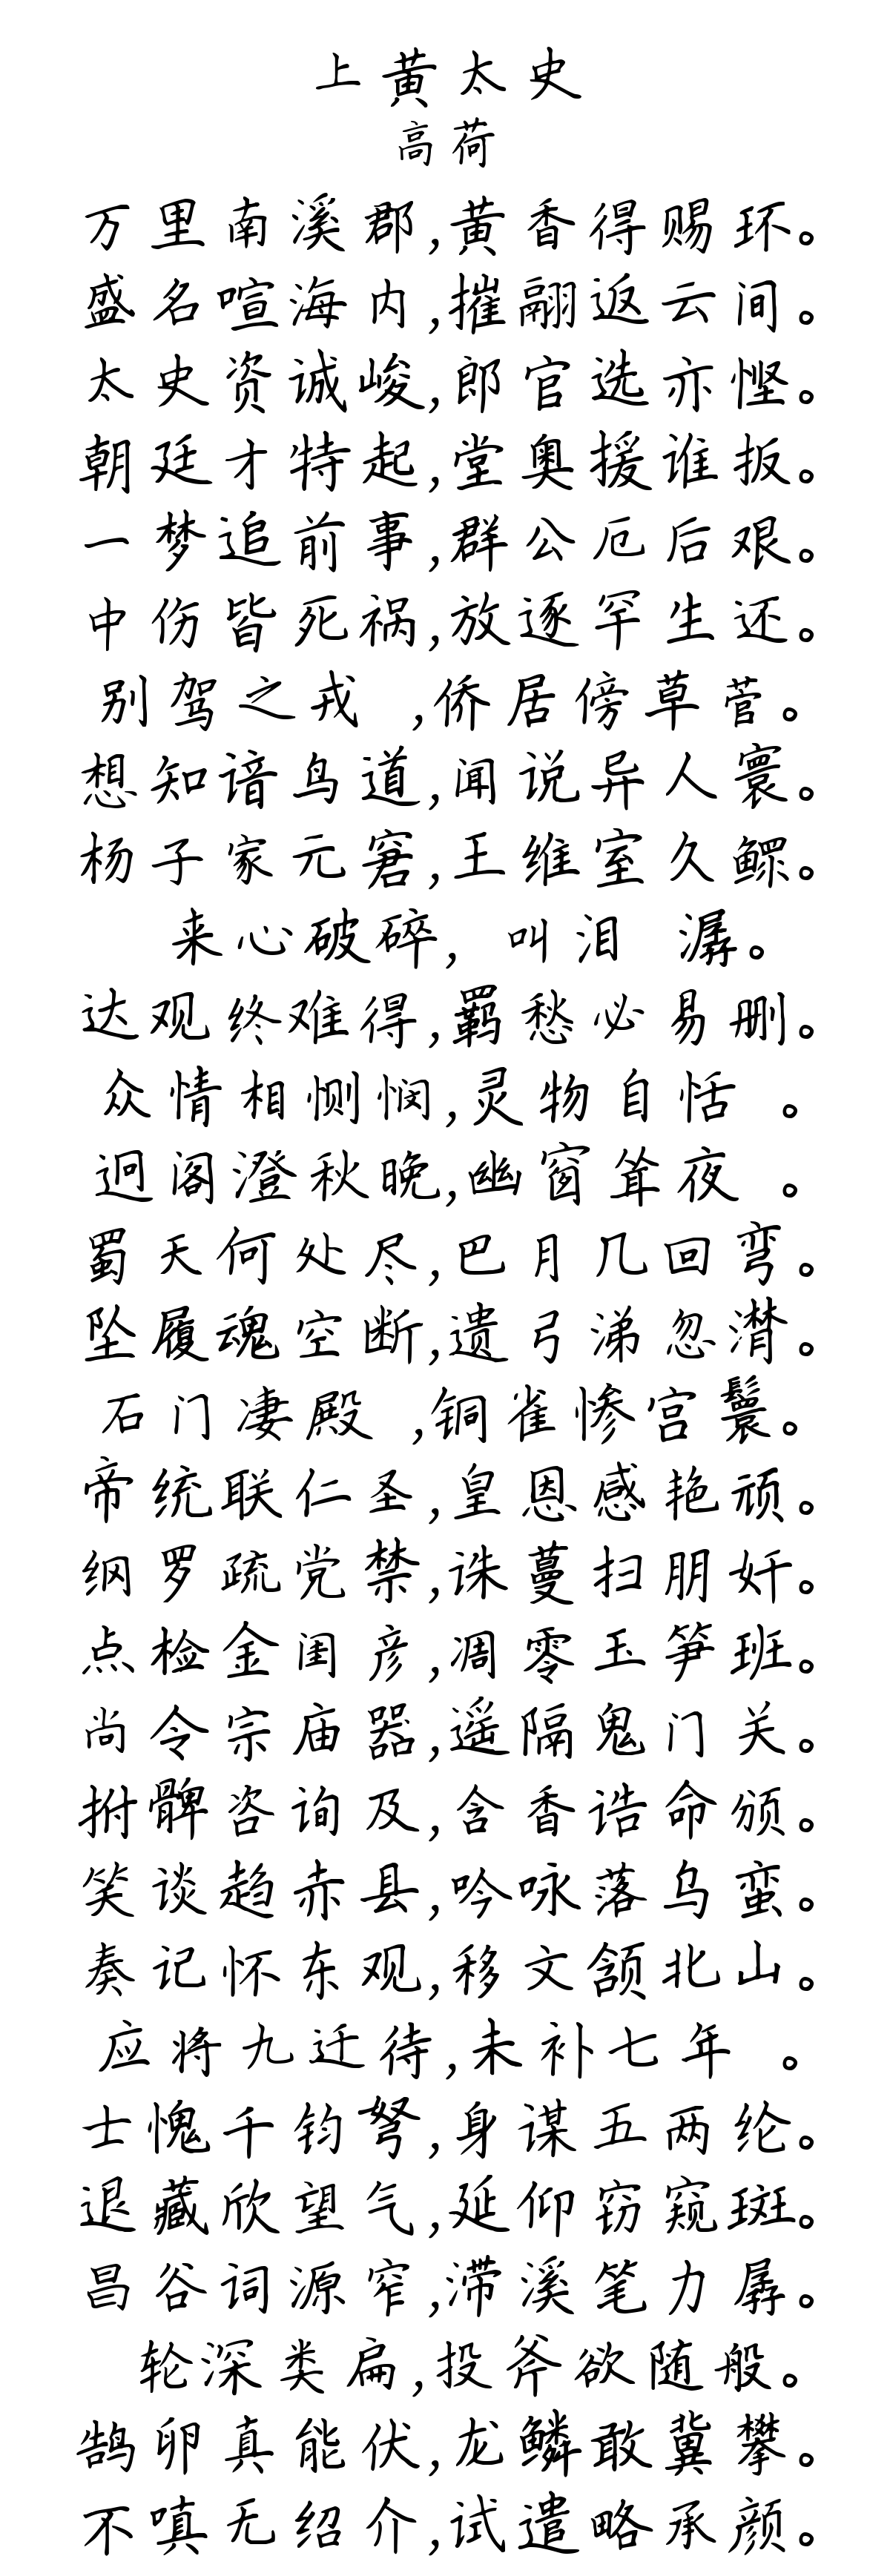 上黄太史
高荷
万里南溪郡,黄香得赐环。
盛名喧海内,摧翮返云间。
太史资诚峻,郎官选亦悭。
朝廷才特起,堂奥援谁扳。
一梦追前事,群公厄后艰。
中伤皆死祸,放逐罕生还。
别驾之戎 ,侨居傍草菅。
想知谙鸟道,闻说异人寰。
杨子家元窘,王维室久鳏。
来心破碎, 叫泪 潺。
达观终难得,羁愁必易删。
众情相恻悯,灵物自恬 。
迥阁澄秋晚,幽窗耸夜 。
蜀天何处尽,巴月几回弯。
坠履魂空断,遗弓涕忽潸。
石门凄殿 ,铜雀惨宫鬟。
帝统联仁圣,皇恩感艳顽。
纲罗疏党禁,诛蔓扫朋奸。
点检金闺彦,凋零玉笋班。
尚令宗庙器,遥隔鬼门关。
拊髀咨询及,含香诰命颁。
笑谈趋赤县,吟咏落乌蛮。
奏记怀东观,移文颔北山。
应将九迁待,未补七年 。
士愧千钧弩,身谋五两纶。
退藏欣望气,延仰窃窥斑。
昌谷词源窄,滞溪笔力孱。
轮深类扁,投斧欲随般。
鹄卵真能伏,龙鳞敢冀攀。
不嗔无绍介,试遣略承颜。